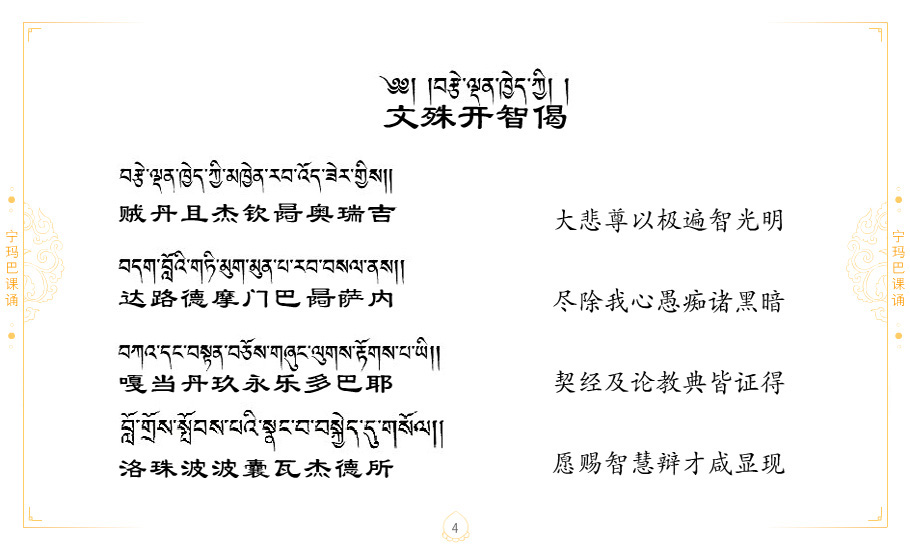 ༄༅། །བརྩེ་ལྡན་ཁྱེད་ཀྱི། །
文殊开智偈
བརྩེ་ལྡན་ཁྱེད་ཀྱི་མཁྱེན་རབ་འོད་ཟེར་གྱིས།།
贼丹且杰钦曷奥瑞吉
大悲尊以极遍智光明
བདག་བློའི་གཏི་མུག་མུན་པ་རབ་བསལ་ནས།།
达路德摩门巴曷萨内
尽除我心愚痴诸黑暗
བཀའ་དང་བསྟན་བཅོས་གཞུང་ལུགས་རྟོགས་པ་ཡི།།
嘎当丹玖永乐多巴耶
契经及论教典皆证得
བློ་གྲོས་སྤོབས་པའི་སྣང་བ་བསྐྱེད་དུ་གསོལ།།
洛珠波波囊瓦杰德所
愿赐智慧辩才咸显现
宁玛巴课诵
宁玛巴课诵
4